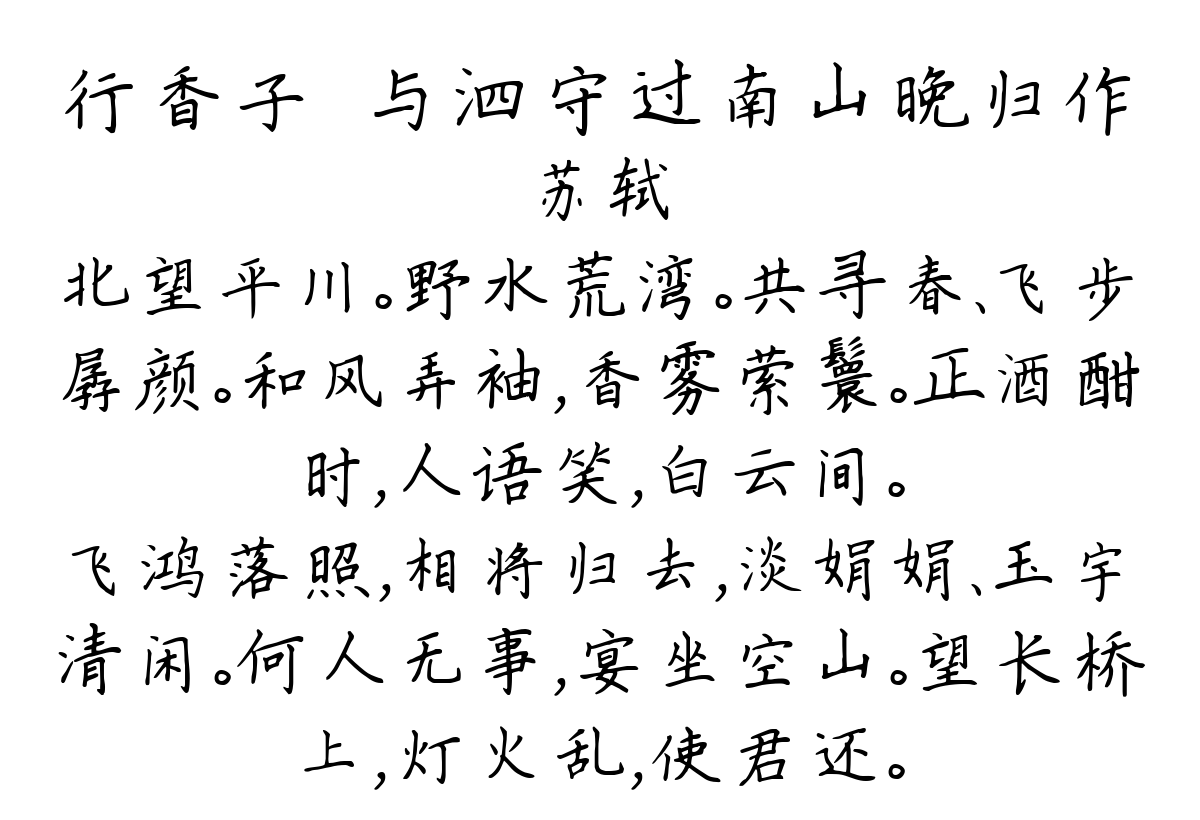 行香子 与泗守过南山晚归作
苏轼
北望平川。野水荒湾。共寻春、飞步
孱颜。和风弄袖,香雾萦鬟。正酒酣
时,人语笑,白云间。
飞鸿落照,相将归去,淡娟娟、玉宇
清闲。何人无事,宴坐空山。望长桥
上,灯火乱,使君还。